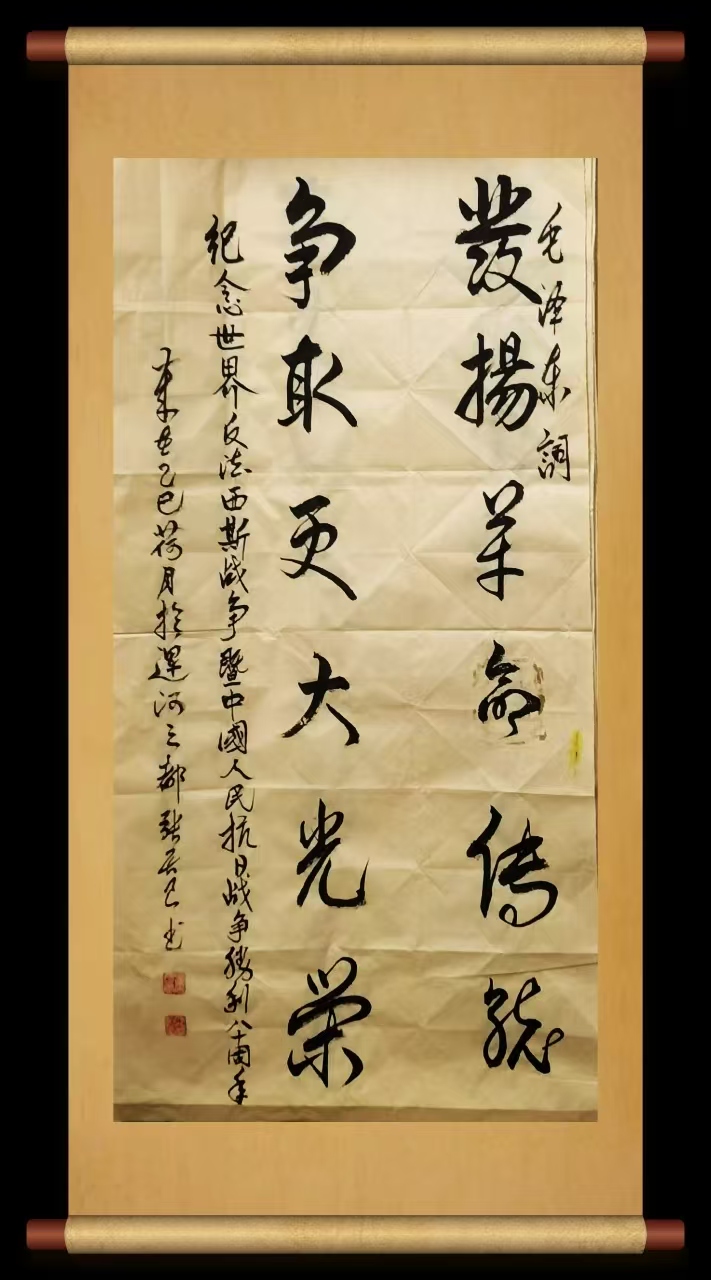 毛泽东詞
發揚革命传统
争取更大光荣
纪念世界反法西斯战争暨中國人民抗日战争勝利八十周年
乙巳荷月於運河之都 书